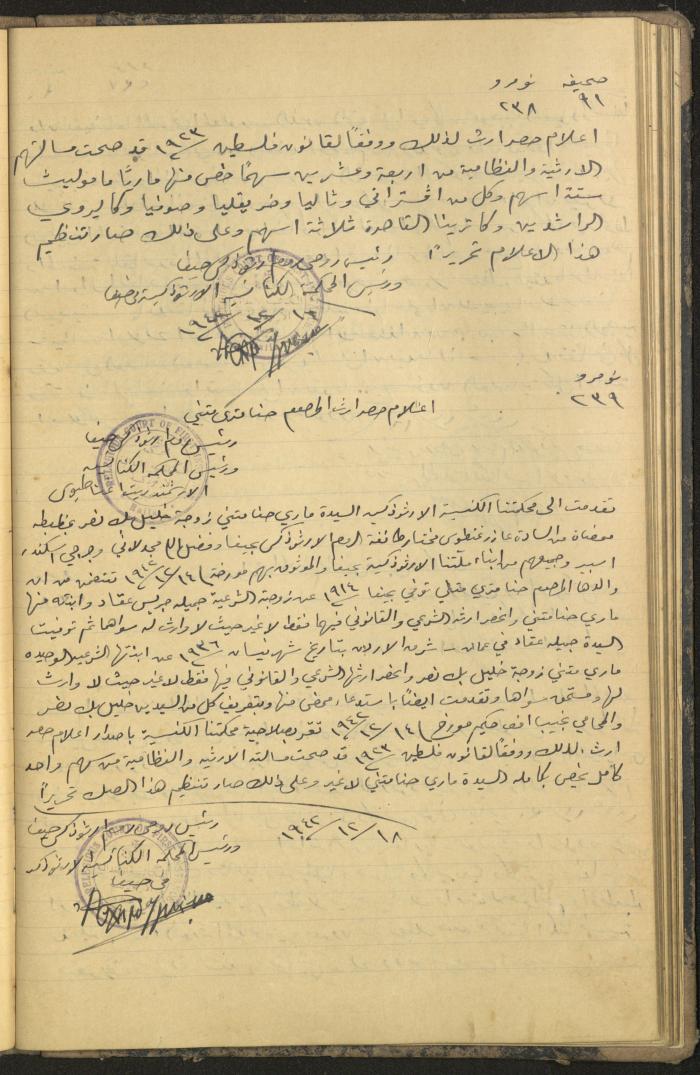 صحيفه نومرو
٩١ ٢٣٨
اعلام حصر ارث لذلك ووفقاً لقانون فلسطين ١٩٢٣ قد صحت مسالتهم
الارثية والنظامية من اربعة وعشرين سهمًا خص منها ماريتا
ستة اسهم وكل من وثاليا وصوفيا
الراشدين وكاترينا القاصرة ثلاثة اسهم وعلى ذلك صار تنظيم
هذا الاعلام تحريرًا رئيس روحي روم ارثوذكس حيفا
ورئيس المحكمة الكنائسية الارثوذكسية في حيفا
١٨/١٢/١٩٤٢
نومرو
٢٣٩
اعلام حصر ارث المرحوم حنا متري متني
ورئيس روم ارثوذكس حيفا
ورئيس المحكمة الكنائسية
الارشمندريت
تقدمت الى محكمتنا الكنسية الارثوذكسية السيدة ماري حنا متني زوجة خليل بك نصر بمضبطه
ممضاة من السادة عازر غنطوس مختار طائفة الروم الارثوذكس بحيفا وفضل الله مجدلاني وجرجي اسكندر
اسبير وجميعهم من ابناء ملتنا الارثوذكسية بحيفا والموثوق بهم مورخة ١٤/١٢/١٩٤٢ تتضمن من ان
والدها المرحوم حنا متري متني توفي بحيفا ١٩١٤ عن زوجته الشرعية جميله جريس عقاد وابنته منها
ماري حنا متني وانحصر ارثه الشرعي والقانوني فيهما فقط لا غير حيث لا وارث له سواهما ثم توفيت
السيدة جميله عقاد في عمان شرق الاردن بتاريخ شهر نيسان ١٩٣٦ عن ابنتها الشرعية الوحيده
ماري متني زوجة خليل بك نصر وانحصر ارثها الشرعي والقانوني فيها فقط لا غير حيث لا وارث
لها ومستحق سواها وتقدمت ايضًا باستدعاء ممضى منها وبتعريف كل من السيدين خليل بك نصر
والمحامي نجيب افـ حكيم مورخ ١٤/١٢/١٩٤٢ تقر بصلاحية محكمتنا الكنسية باصدار اعلام حصر
ارث لذلك ووفقاً لقانون فلسطين ١٩٢٣ قد صحت مسالته الارثيه والنظامية من سهم واحد
كامل يخص بكامله السيدة ماري حنا متني لا غير وعلى ذلك صار تنظيم هذا الصك تحريرًا
١٨/١٢/١٩٤٢ رئيس روحي روم ارثوذكس حيفا
ورئيس المحكمة الكنائسية الارثوذكسية
في حيفا